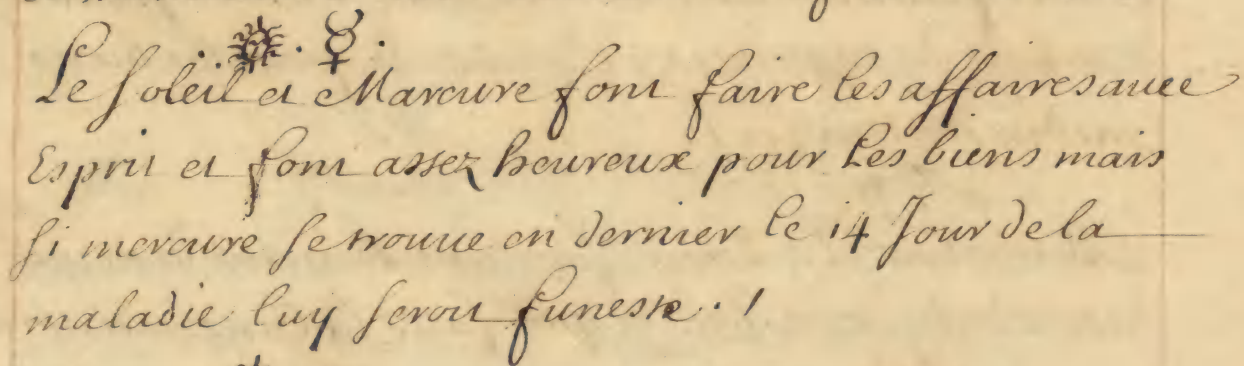 ☉. ☿.
Le soleil et Marcure font faire les affaires avec
Esprit et sont assez heureux pour les biens mais
si mercure se trouve en dernier le 14 Jour de la
maladie luy seroit funeste. /